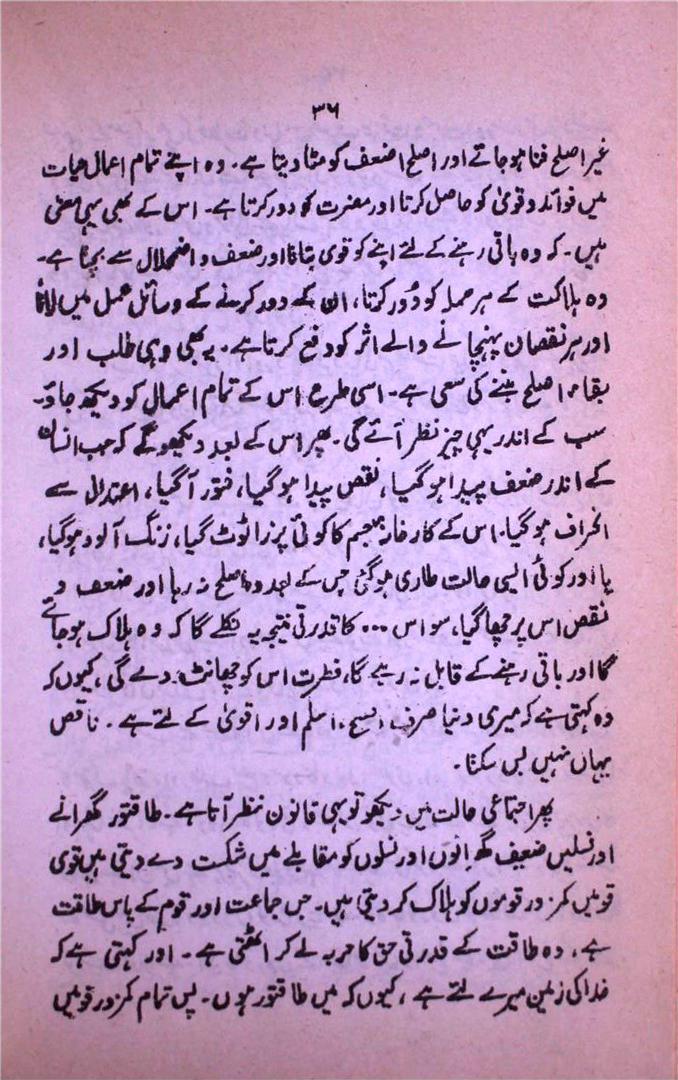 ۳۶
غیر اصلح فنا ہو جاتے اور اصلح اضعف کو مٹا دیتا ہے۔ وہ اپنے تمام اعمال حیات
میں فوائد و قویٰ کو حاصل کرتا اور مضرت کو دور کرتا ہے۔ اس کے بھی یہی معنی
ہیں۔ کہ وہ باقی رہنے کے لئے اپنے کو قوی بناتا اور ضعف و اضمحلال سے بچتا ہے۔
وہ ہلاکت کے ہر حملہ کو دُور کرتا، ان کے دور کرنے کے وسائل عمل میں لاتا
اور ہر نقصان پہنچانے والے اثر کو دفع کرتا ہے۔ یہ بھی وہی طلب اور
بقاء اصلح بننے کی سعی ہے۔ اسی طرح اس کے تمام اعمال کو دیکھ جاؤ۔
سب کے اندر یہی چیز نظر آئے گی۔ پھر اس کے بعد دیکھو گے کہ جب انسان
کے اندر ضعف پیدا ہو گیا، نقص پیدا ہو گیا، فتور آ گیا، اعتدال سے
انحراف ہو گیا۔ اس کے کارخانہ جسم کا کوئی پرزا ٹوٹ گیا، زنگ آلود ہو گیا،
یا اور کوئی ایسی حالت طاری ہو گئی جس کے بعد وہ اصلح نہ رہا اور ضعف و
نقص اس پر چھا گیا، سو اس ... کا قدرتی نتیجہ یہ نکلے گا کہ وہ ہلاک ہو جائے
گا اور باقی رہنے کے قابل نہ رہے گا، فطرت اس کو چھانٹ دے گی، کیوں کہ
وہ کہتی ہے کہ میری دنیا صرف اسلم اور اقویٰ کے لئے ہے۔ ناقص
یہاں نہیں بس سکتا۔
پھر اجتماعی حالت میں دیکھو تو یہی قانون نظر آتا ہے۔ طاقتور گھرانے
اور نسلیں ضعیف گھرانوں اور نسلوں کو مقابلے میں شکست دے دیتی ہیں قوی
قومیں کمزور قوموں کو ہلاک کر دیتی ہیں۔ جس جماعت اور قوم کے پاس طاقت
ہے، وہ طاقت کے قدرتی حق کا حربہ لے کر اٹھتی ہے۔ اور کہتی ہے کہ
خدا کی زمین میرے لئے ہے، کیوں کہ میں طاقتور ہوں۔ پس تمام کمزور قومیں